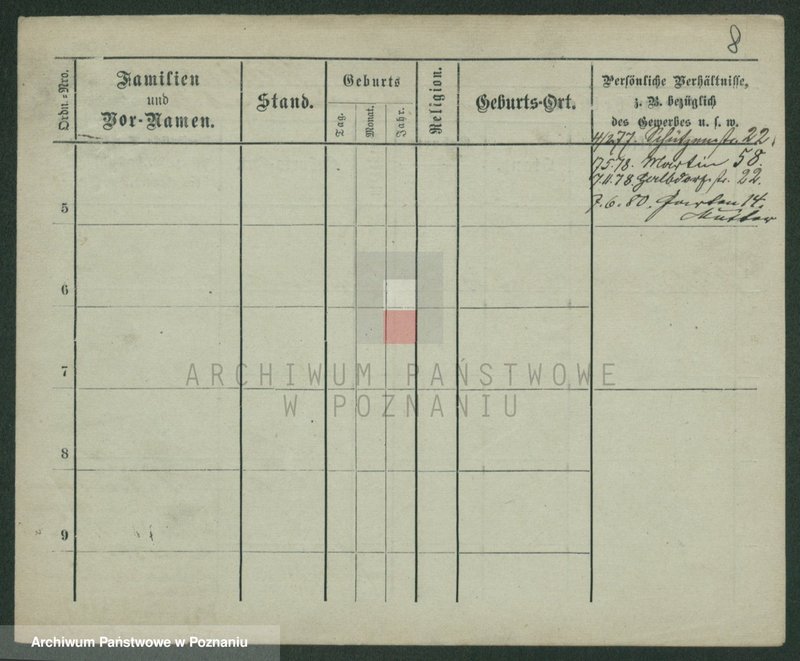 8
Ordn.-Nro.
Familien
und
Vor-Namen.
Stand.
Geburts
Tag.
Monat.
Jahr.
Religion.
Geburts-Ort.
Persönliche Verhältnisse,
z. B. bezüglich
des Gewerbes u. s. w.
77. Schützenstr. 22.
5.78. Martin 58.
78. Halbdorfstr. 22.
7.6.80. Garten 14.
Mutter
5
6
7
8
9
ARCHIWUM PAŃSTWOWE
W POZNANIU
Archiwum Państwowe w Poznaniu